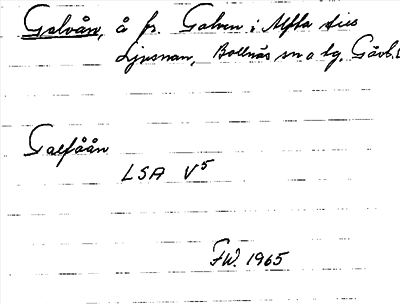 Galvån, å fr. Galven i Alfta till
Ljusnan, Bollnäs sn o tg, Gävl. l
Galfåån
LSA V5
FW. 1965